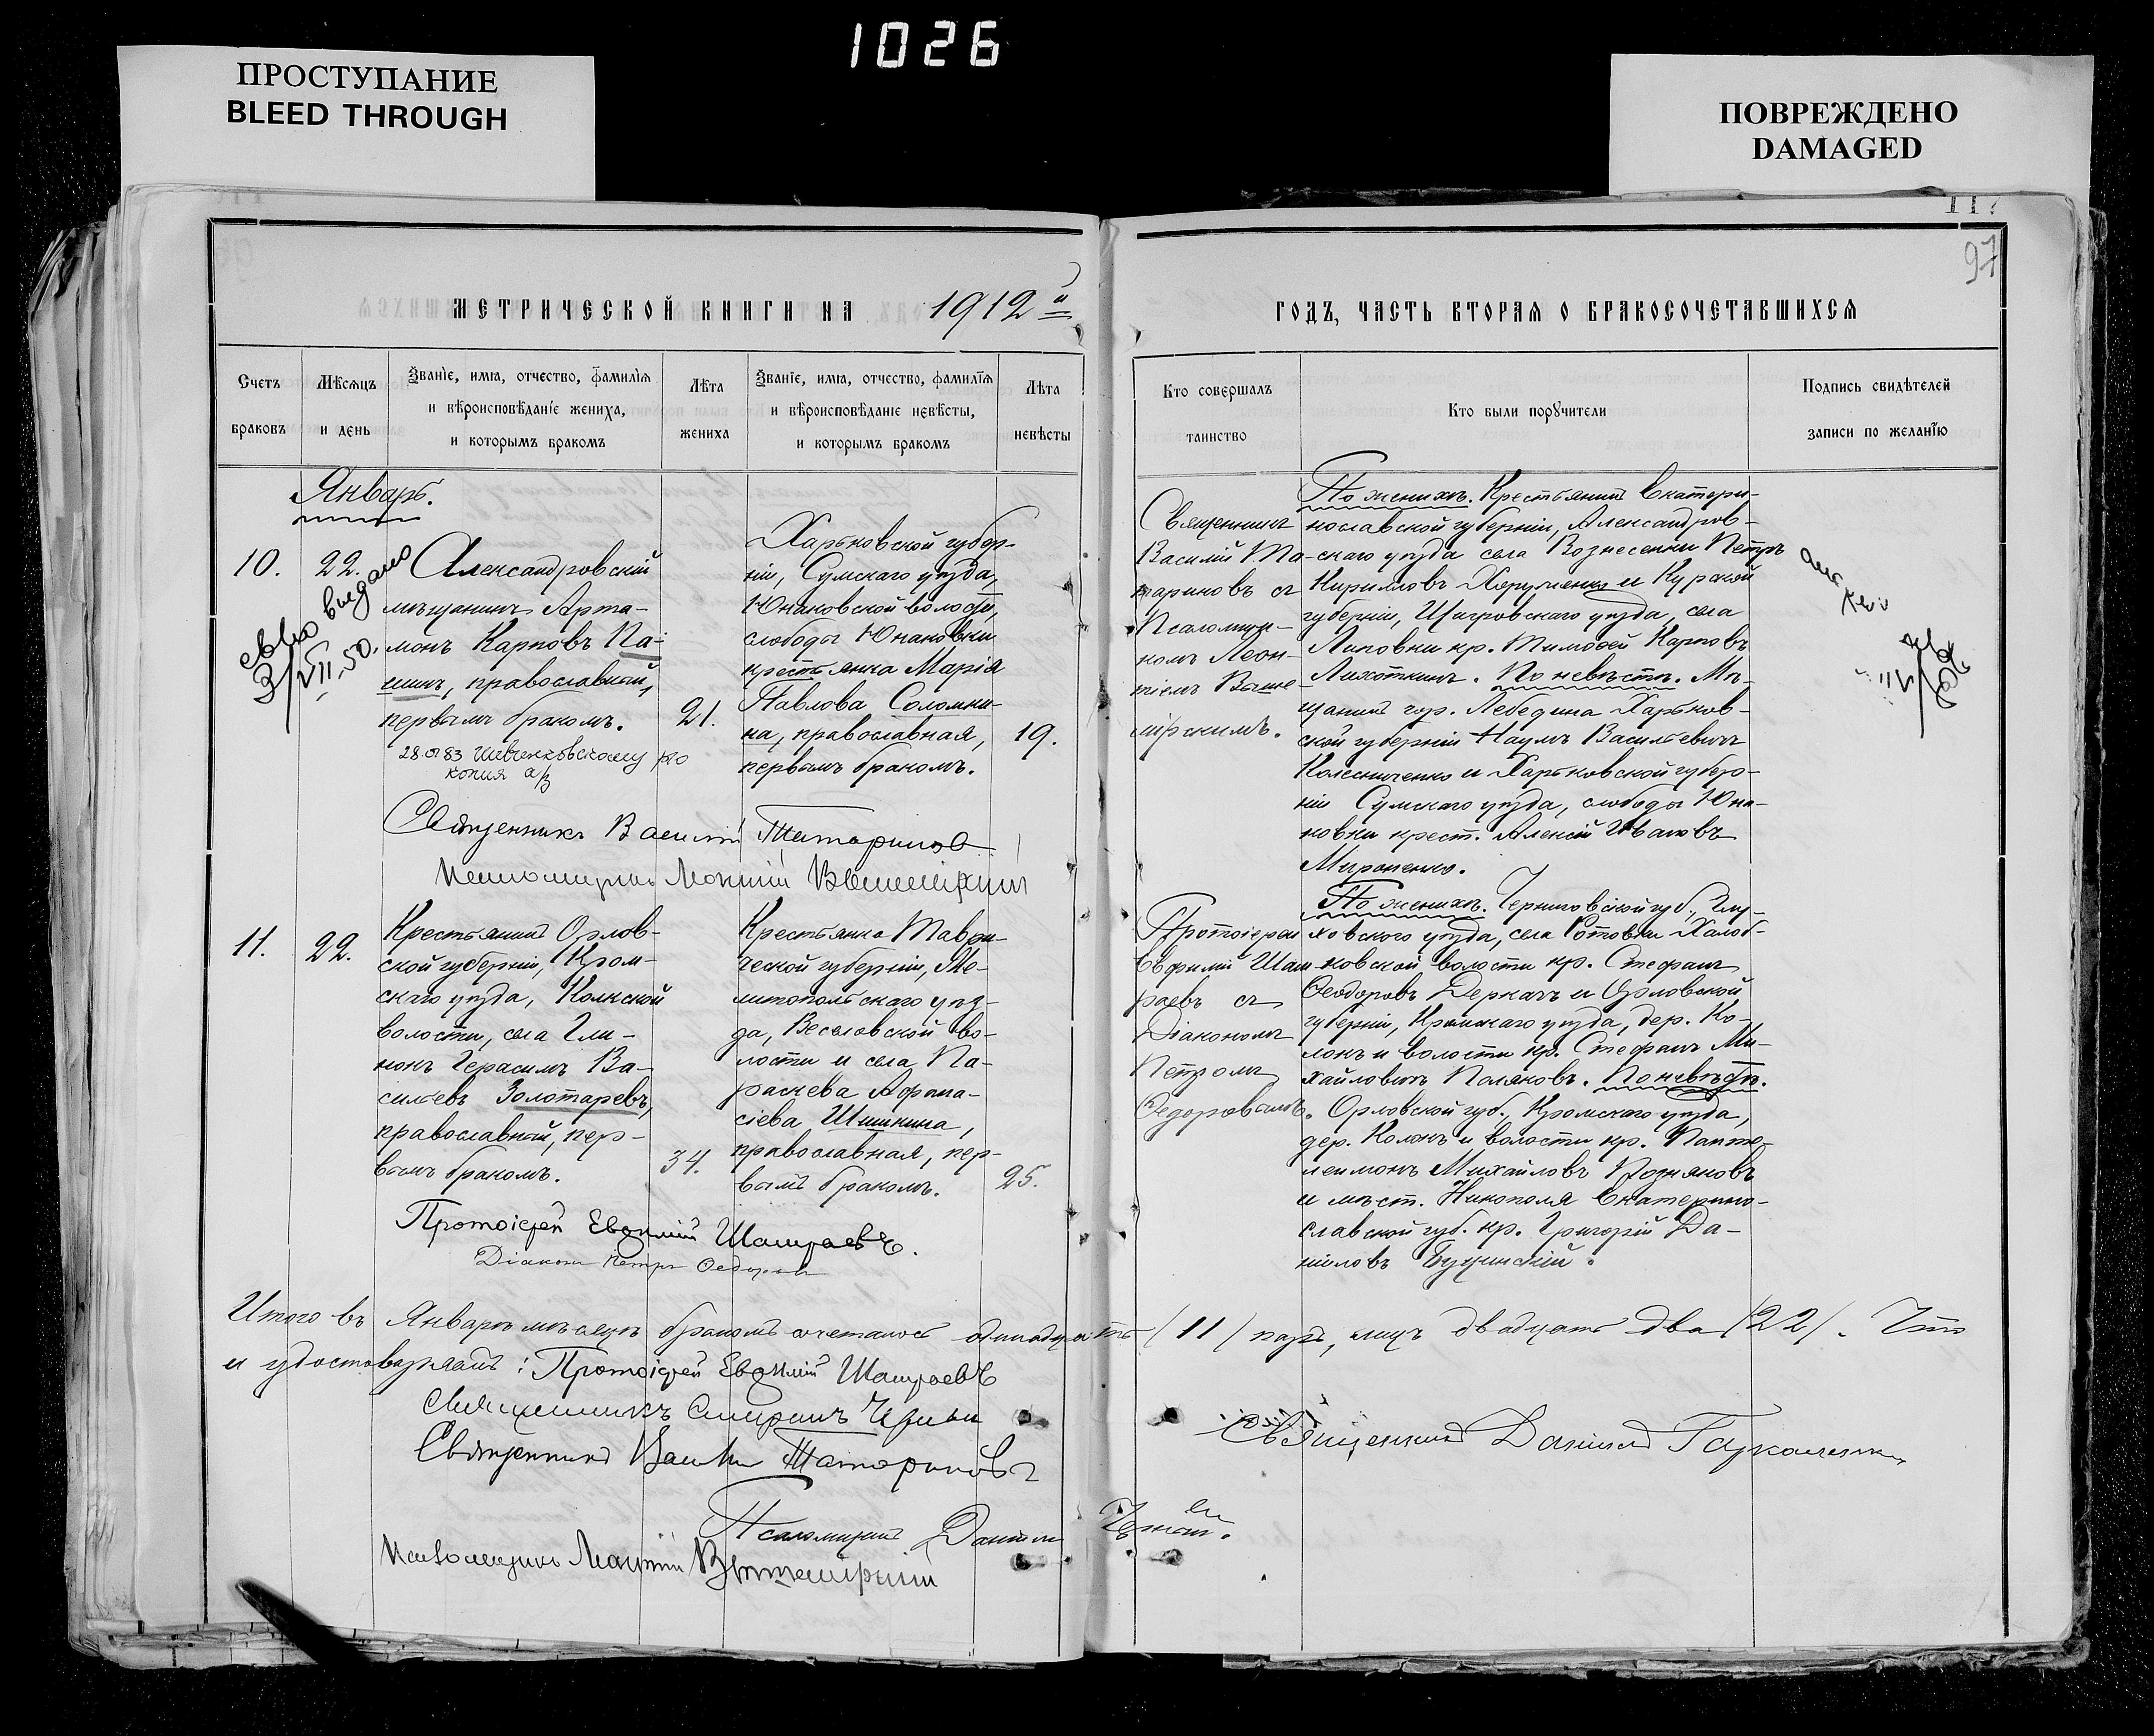 1026
ПРОСТУПАНИЕ
BLEED THROUGH
ПОВРЕЖДЕНО
DAMAGED
117
97
МЕТРИЧЕСКОЙ КНИГИ НА 1912й
ГОДЪ, ЧАСТЬ ВТОРАЯ О БРАКОСОЧЕТАВШИХСЯ
Счетъ
браковъ
Мѣсяцъ
и день
Званіе, имя, отчество, фамилія
и вѣроисповѣданіе жениха,
и которымъ бракомъ
Лѣта
жениха
Званіе, имя, отчество, фамилія
и вѣроисповѣданіе невѣсты,
и которымъ бракомъ
Лѣта
невѣсты
Кто совершалъ
таинство
Кто были поручители
Подпись свидѣтелей
записи по желанію
Январь.
10.
22.
св-во выдано
3/VII-50.
Александровскій
мѣщанинъ Арта-
монъ Карповъ Па-
шинъ, православный,
первымъ бракомъ.
21.
28.01.83 Шевченковскому р/о
копия а/з
Харьковской губер-
ніи, Сумскаго уѣзда,
Юнаковской волости,
слободы Юнаковки
крестьянка Марія
Павлова Соломки-
на, православная,
первымъ бракомъ.
19.
Священникъ
Василій Та-
тариновъ съ
Псаломщи-
комъ Леон-
тіемъ Выше-
мірскимъ.
По женихѣ. Крестьянинъ Екатери-
нославской губерніи, Александров-
скаго уѣзда села Вознесенки Петръ
Кирилловъ и Курской
губерніи, Щигровскаго уѣзда, села
Липовки кр. Тимоѳей Карповъ
Лихоткинъ. По невѣстѣ. Мѣ-
щанинъ гор. Лебедина Харьков-
ской губерніи Наумъ Васильевичъ
Колесниченко и Харьковской губер-
ніи Сумскаго уѣзда, слободы Юна-
ковки крест. Алексій Ивановъ
Мироненко.
Священникъ Василій Татариновъ
Псаломщикъ Леонтій Вышемірскій
11.
22.
Крестьянинъ Орлов-
ской губерніи, Кром-
скаго уѣзда, Колкской
волости, села Гли-
нокъ Герасимъ Ва-
сильевъ Золотаревъ,
православный, пер-
вымъ бракомъ.
34.
Крестьянка Таври-
ческой губерніи, Ме-
литопольскаго уѣз-
да, Веселовской во-
лости и села Па-
раскева Аѳана-
сіева Шишкина,
православная, пер-
вымъ бракомъ.
25.
Протоіерей
Евфимій Шаш-
раевъ съ
Діакономъ
Петромъ
Ѳедоровымъ.
По женихѣ. Черниговской губ., Глу-
ховского уѣзда, села
волости кр. Стефанъ
Ѳеодоровъ Деркачъ и Орловской
губерніи, Кромскаго уѣзда, дер. Ко-
локъ и волости кр. Стефанъ Ми-
хайловичъ Поляковъ. По невѣстѣ.
Орловской губ., Кромского уѣзда,
дер. Колокъ и волости кр. Панте-
леимонъ Михайловъ Позняковъ
и мѣст. Никополя Екатерино-
славской губ. кр. Григорій Да-
ниловъ
Протоіерей Евфимій Шашраевъ.
Діаконъ Петръ Ѳедоровъ
Итого въ Январѣ мѣсяцѣ бракомъ сочеталось одинадцать (11) паръ, лицъ двадцать два (22). Что
и удостовѣряемъ: Протоіерей Евфимій Шашраевъ
Священникъ
Священникъ Василій Татариновъ
Священникъ Даніилъ
Псаломщикъ Даніилъ
Псаломщикъ Леонтій Вышемірскій